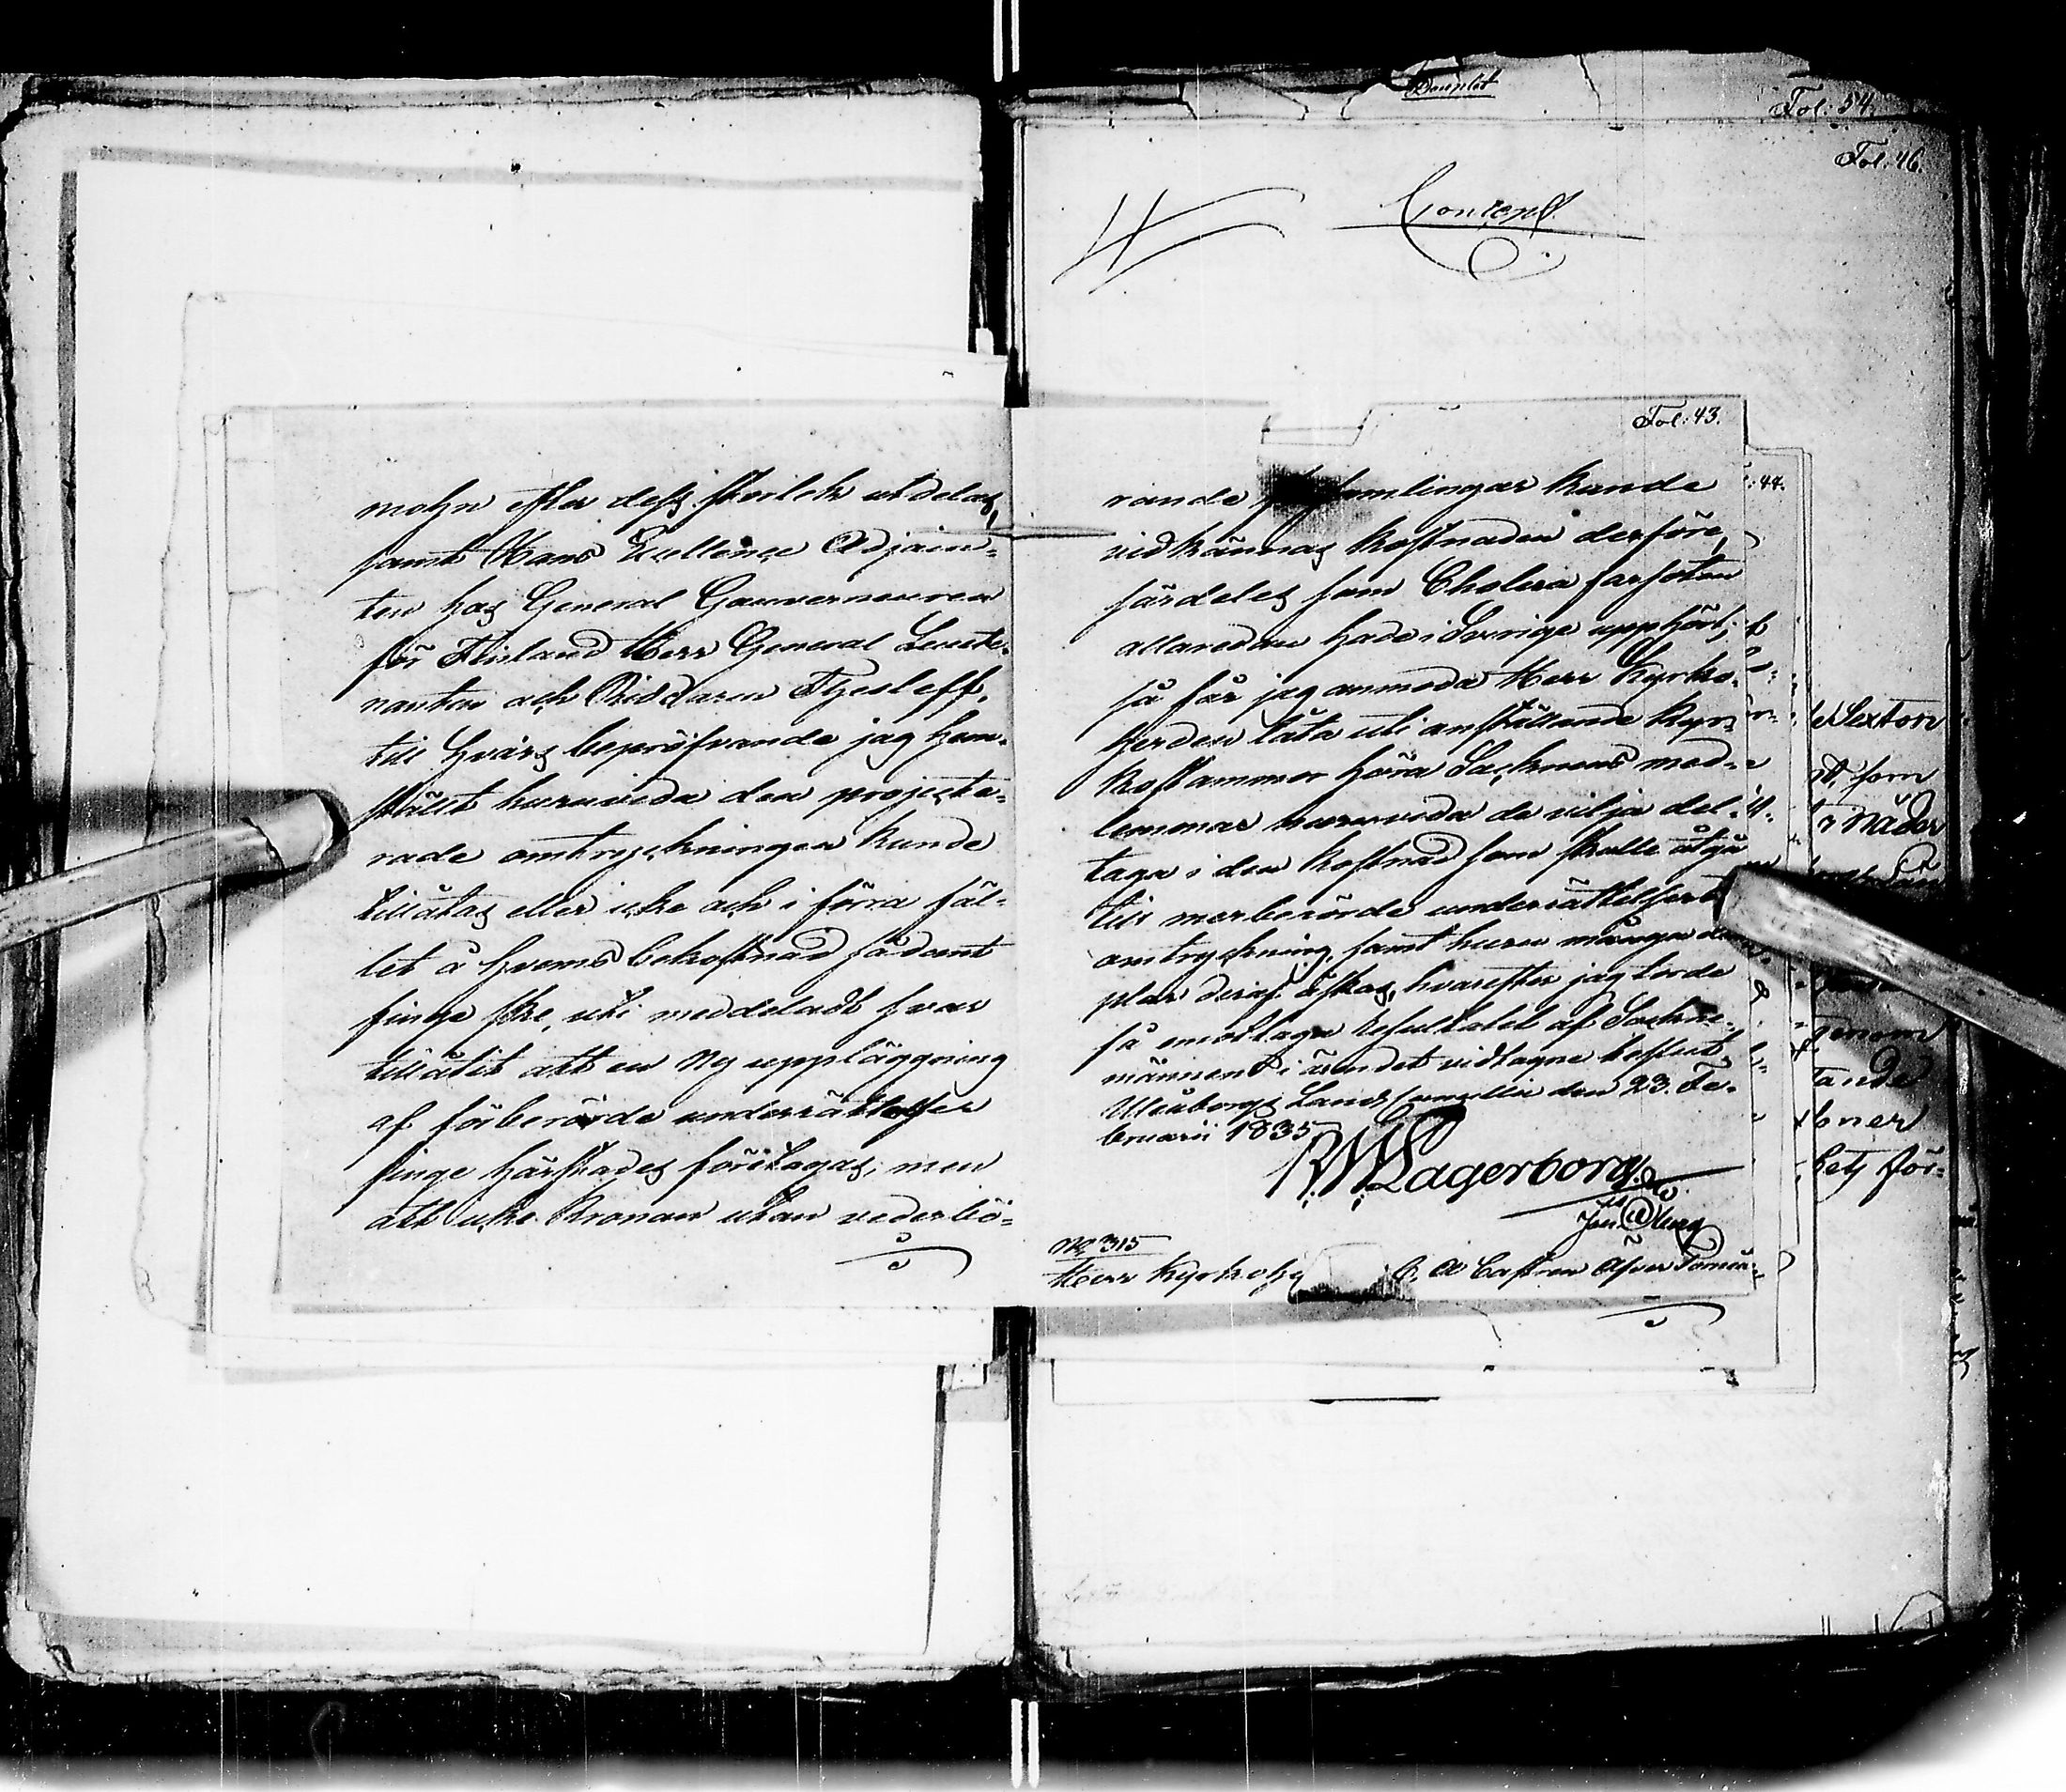 mohn efter dess storlek utdelas,
samt Hans Excellence Adjoin-
ten hos General Gouverneuren
för Finland Herr General Lieute-
nanten och Riddaren Thesleff,
till hvars bepröfvande jag hem-
stält huruvida den projecte-
rade omtryckningen kunde
tillåtas eller icke och i förra fal-
let å hvems bekostnad sådant
finge ske, uti meddeladt svar
tillåtit att en ny uppläggning
af förberörde underrättelser
finge härstädes företagas; men
att icke Kronan utan vederbö-
Douplet
Fol: 54.
Fol: 46.
Fol: 43.
rande församlingar kunde
vidkännas kostnaden derföre,
särdeles som Cholera farsoten
allaredan hade i Sverige upphört;
så får jag anmoda Herr Kyrko-
herden låta uti anställande Kyr-
kostämmor höra Socknens med-
lemmar huruvida de vilja del-
taga i den kostnad som skulle åtgå
till merberörde underrättelsers
omtryckning, samt huru många
plar deraf åstas, hvarefter jag torde
få emottaga resultatet af Sockne-
männens i ärendet vidtagne beslut.
Uleåborgs Lands Cancellie den 23. Fe-
bruarii 1835
R W Lagerborg
No 315
Herr Kyrkoh
C. A Castren Öfver Torneå
: 44.
Sexton
som
Nåder
genom
tande
oner
hets för-